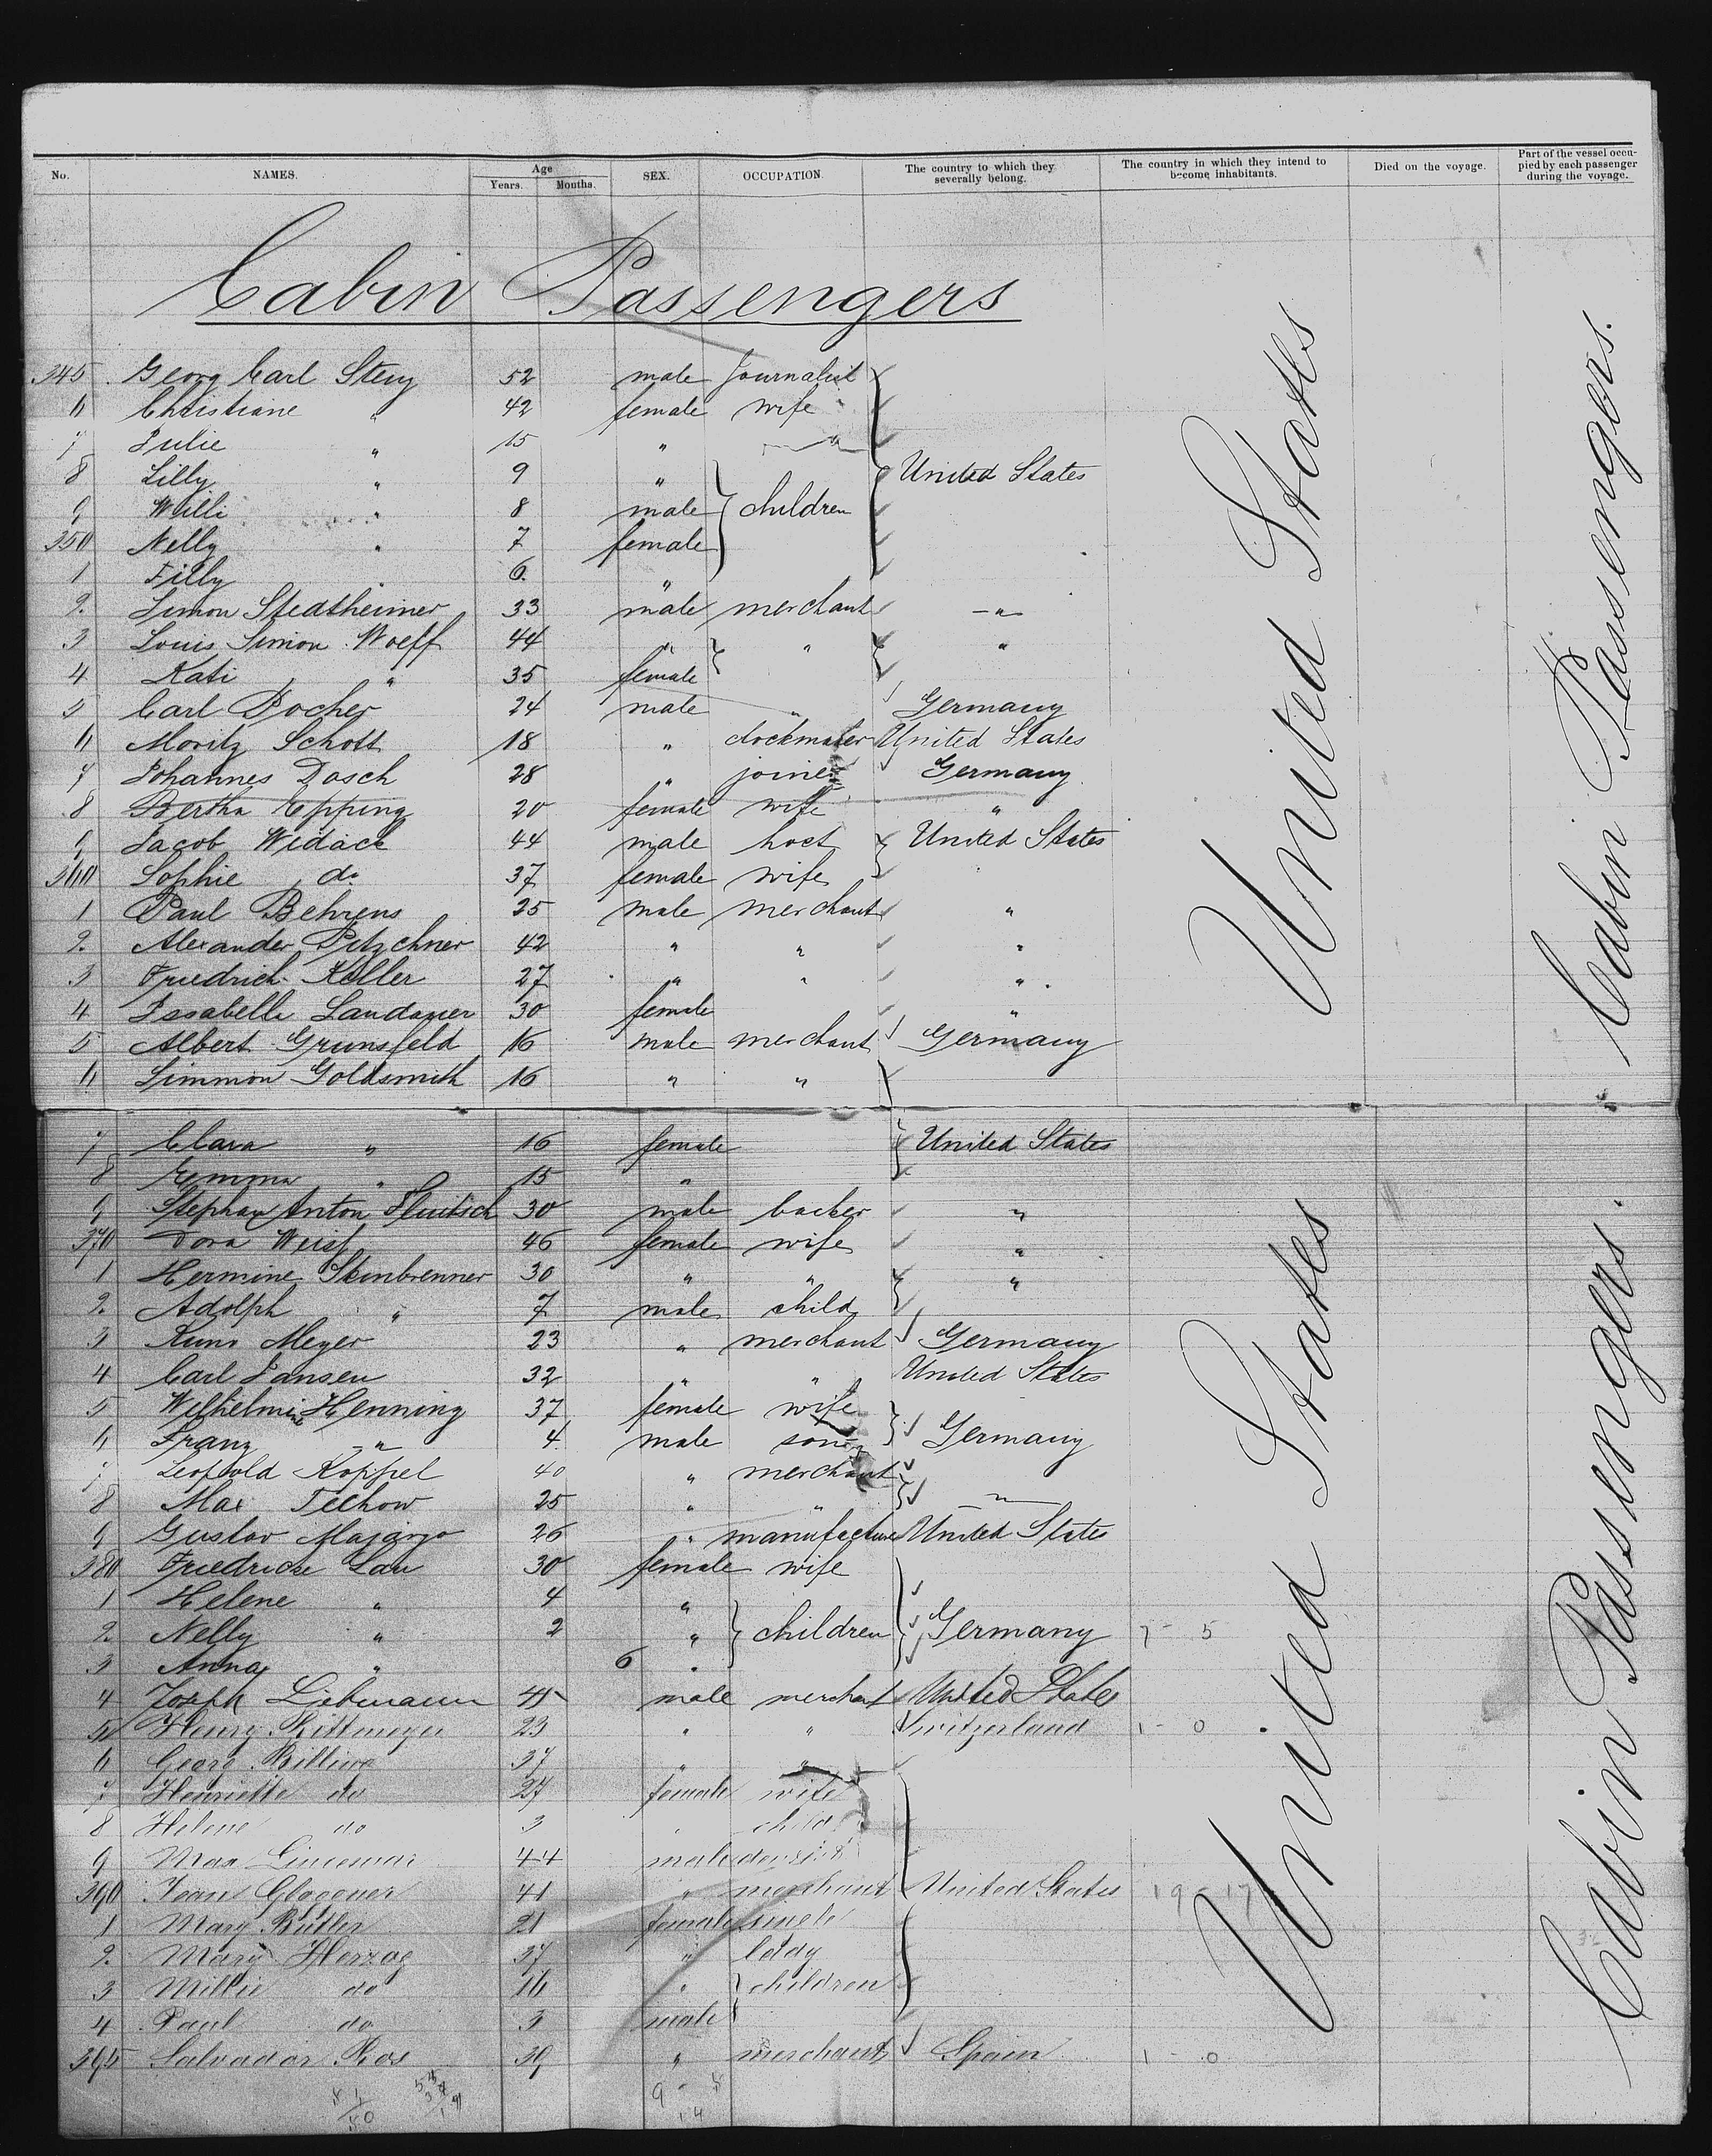 No. NAMES. Age Years. Months. SEX. OCCUPATION. The country to which they severally belong. The country in which they intend to become inhabitants. Died on the voyage. Part of the vessel occupied by each passenger during the voyage.
Cabin Passengers
345 Georg Carl 52 male Journalist
6 Christiane " 42 female wife
7 Julie " 15 " "
8 Lilly " 9 " United States
9 Willi " 8 male children
350 Nelly " 7 female
1 Filly " 6 "
2. Simon Stedtheimer 33 male merchant "
3 Louis Simon Woeff 44 " " "
4 Kati " 35 female
5 Carl Pocher 24 male " Germany
6 Moritz Schott 18 " clockmaker United States
7 Johannes Dosch 28 " joiner Germany
8 Bertha Epping 20 female wife "
9 Jacob Widack 44 male host United States
360 Sophie do 37 female wife
1 Paul Behrens 25 male merchant "
2. Alexander Pitzchner 42 " " "
3 Friedrich Koller 27 " " "
4 Issabella Landauer 30 female "
5 Albert Grunsfeld 16 male merchant Germany
6 Simmon Goldsmith 16 " "
7 Clara " 16 female United States
8 Emma " 15 "
9 Stephan Anton 30 male backer "
370 Dora 46 female wife "
1 Hermine Steinbrenner 30 " " "
2. Adolph " 7 male child
3 Kuno Meyer 23 " merchant Germany
4 Carl Jansen 32 " " United States
5 Welhelmine Henning 37 female wife
6 Franz " 4 male son Germany
7 Leopold Koppel 40 " merchant
8 Max Techow 25 " " "
9 Gustav 26 " manufacture United States
380 Friedricke Lau 30 female wife
1 Helene " 4 "
2. Nelly " 2 " children Germany 7 - 5
3 Anna " 6 "
4 Joseph Liebmann 45 male merchant United States
5 Henry Rittmeyer 23 " " Switzerland 1 - 0
6 Georg Billing 37 " "
7 Henriette do 27 female wife
8 Helene do 3 " child
9 Max 44 male
390 Glogauer 41 " merchant United States 19 - 17
1 Mary Butler 21 female single
2. Mary Herzog 37 " lady
3 Millie do 16 " children
4 Paul do 3 male
395 Salvador Ros 39 " merchant Spain 1 - 0
United States
Cabin Passengers.
United States
Cabin Passengers.